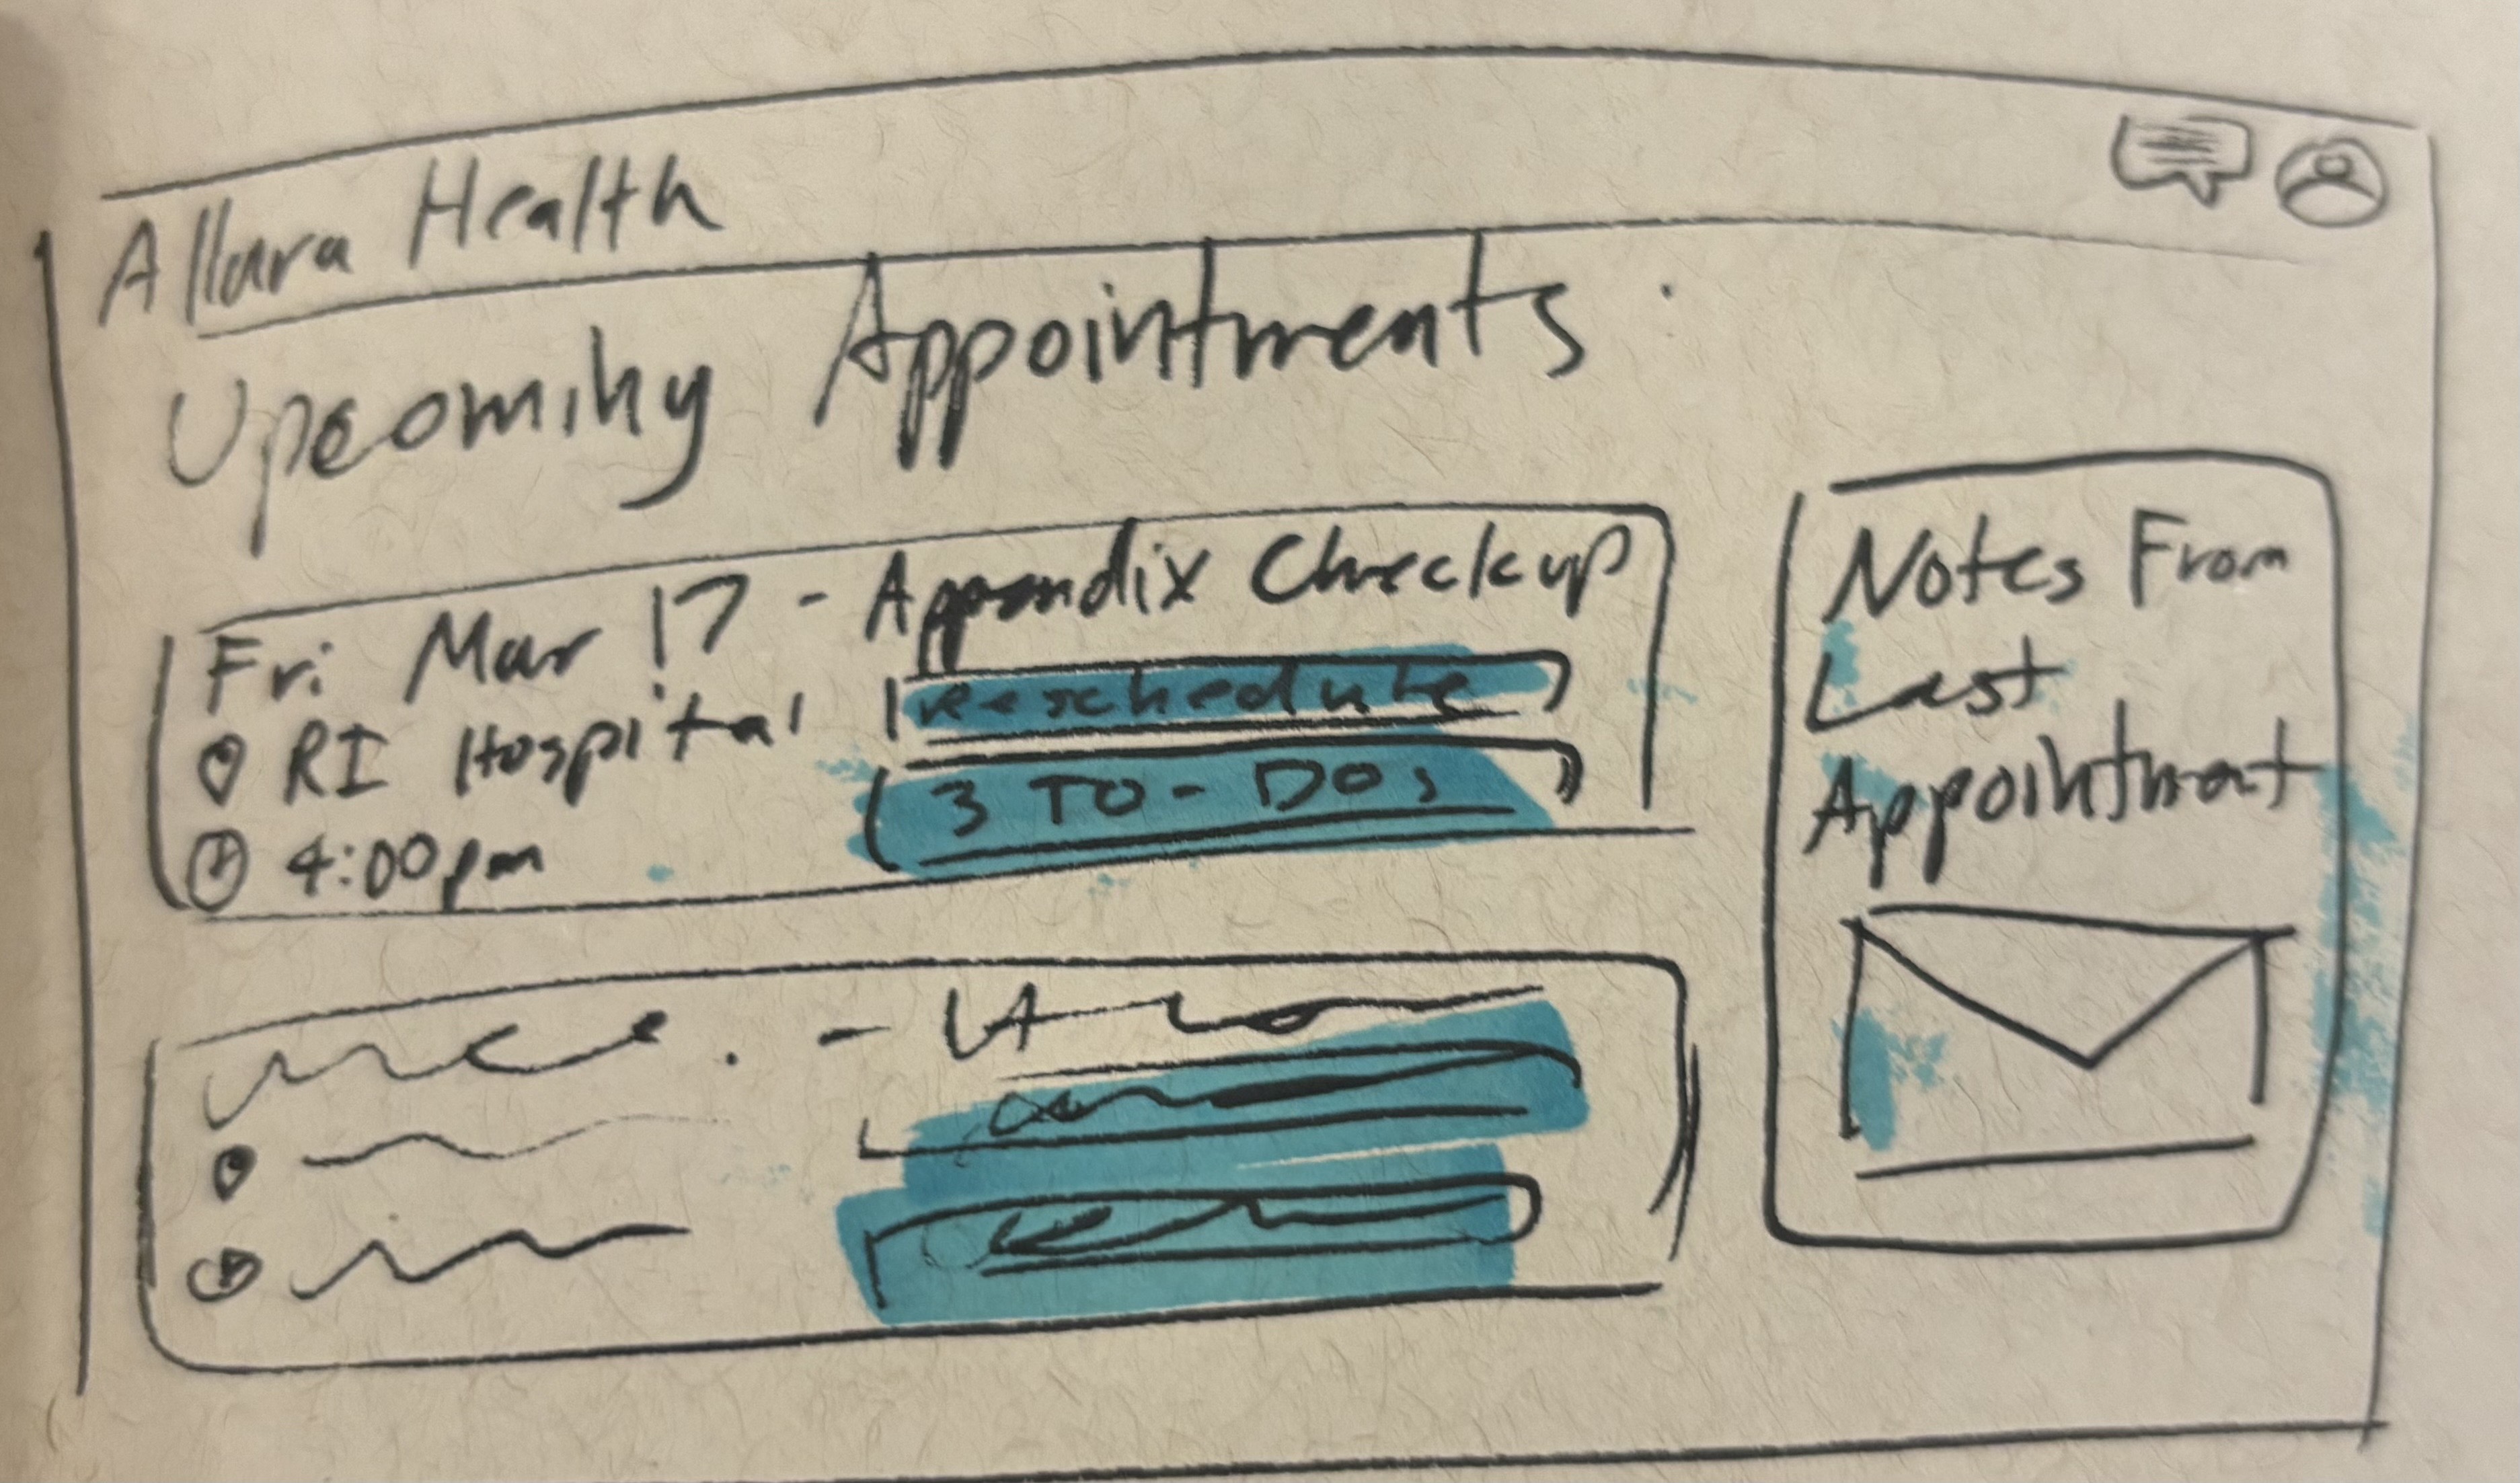 Allara Health
Upcoming Appointments
Fri Mar 17 - Appendix Checkup
RI Hospital
4:00pm
reschedule
3 TO-DOs
Notes From
Last
Appointment